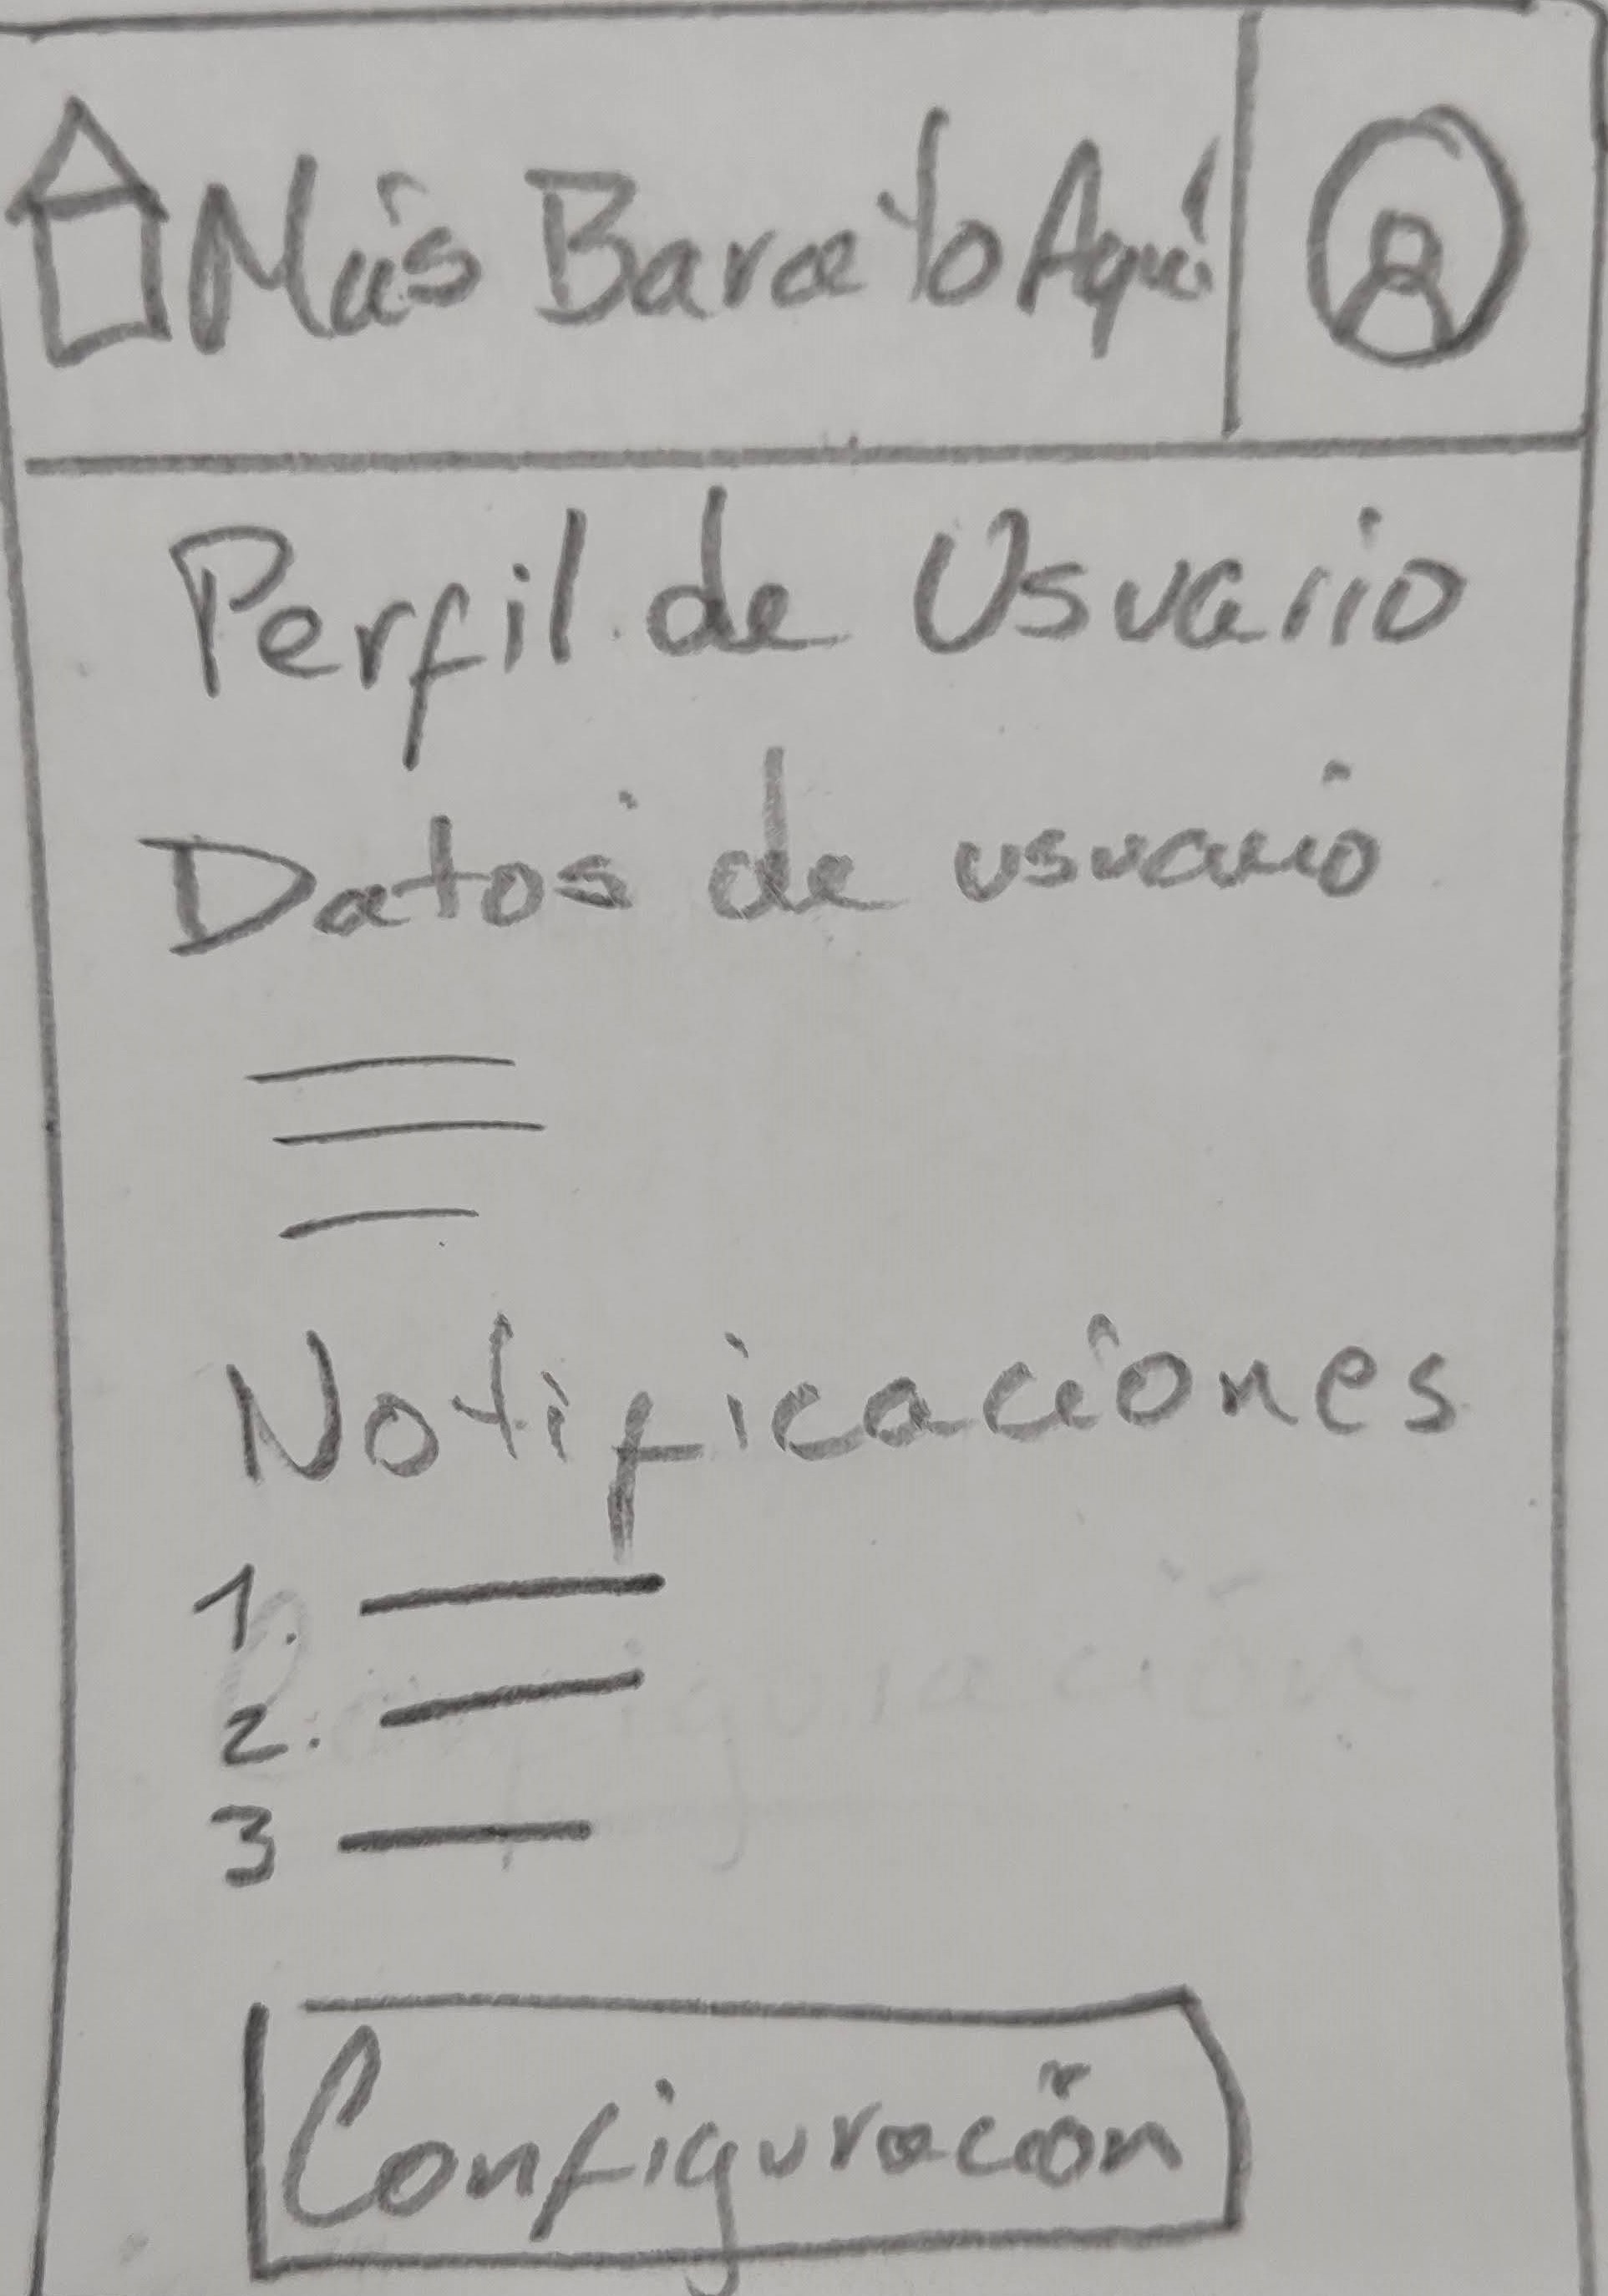 Más Barato Aquí
Perfil de Usuario
Datos de usuario
Notificaciones
1.
2.
3
Configuración